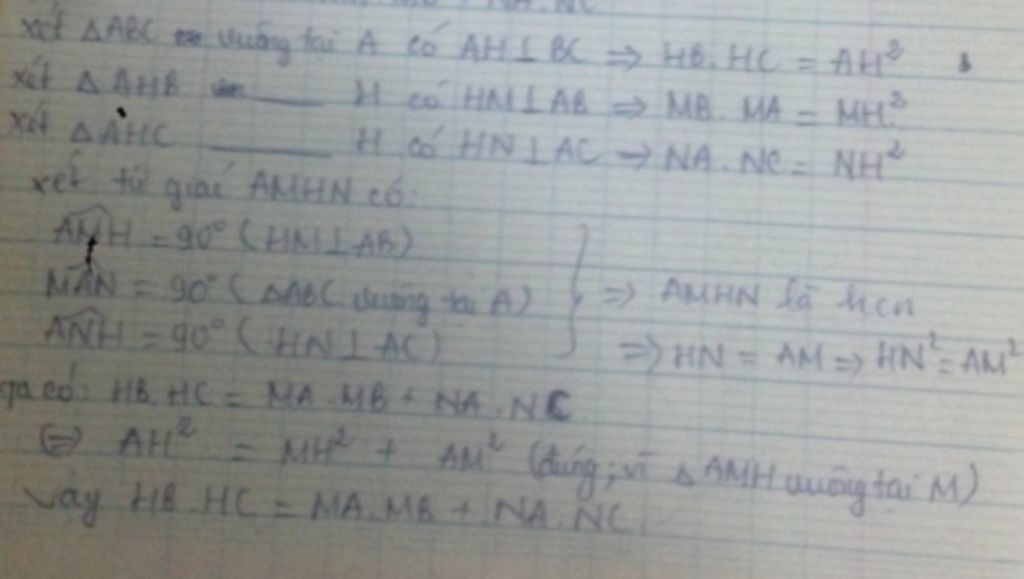 NA.NC
xét ΔABC vuông tại A có AH⊥BC ⇒ HB.HC = AH²
xét ΔAHB ___ H có HM⊥AB ⇒ MB.MA = MH²
xét ΔAHC ___ H có HN⊥AC → NA.NC = NH²
xét tứ giác AMHN có:
AMH = 90° (HM⊥AB)
MAN = 90° (ΔABC vuông tại A) } ⇒ AMHN là hcn
ANH = 90° (HN⊥AC) ⇒ HN = AM ⇒ HN² = AM²
ta có: HB.HC = MA.MB + NA.NC
⇔ AH² = MH² + AM² (đúng; vì ΔAMH vuông tại M)
Vậy HB.HC = MA.MB + NA.NC